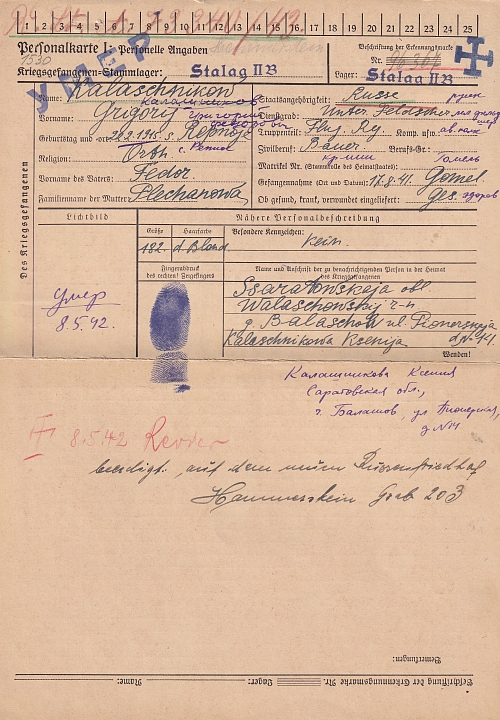 1 2 3 4 5 6 7 8 9 10 11 12 13 14 15 16 17 18 19 20 21 22 23 24 25
Personalkarte I: Personelle Angaben
Beschriftung der Erkennungsmarke
1530
Nr.
Kriegsgefangenen-Stammlager: Stalag II B
Lager: Stalag II B
УМЕР
Name: Kalaschnikow
Калашников
Staatsangehörigkeit: Russe
Vorname: Grigorij
Григорий
Dienstgrad: Unter Feldscher
Geburtstag und -ort:
Truppenteil: Flug. Reg. Komp. usw.
Religion: Orth.
Zivilberuf: Bauer Berufs-Gr.
Matrikel Nr. (Stammrolle des Heimatstaates):
Гомель
Vorname des Vaters: Fedor
Gefangennahme (Ort und Datum): 17.8.41. Gomel
Familienname der Mutter: Plecharowa
Ob gesund, krank, verwundet eingeliefert: ges. здоров
Des Kriegsgefangenen
Lichtbild
Nähere Personalbeschreibung
Größe Haarfarbe Besondere Kennzeichen:
182. d. Blond kein.
Fingerabdruck des rechten! Zeigefingers
Name und Anschrift der zu benachrichtigenden Person in der Heimat des Kriegsgefangenen
Умер
8.5.42.
Ssaratowskaja obl.
Walaschowskij r-n
g. Balaschow ul. Pionerskaja
Kalaschnikowa Ksenija d. № 14
Wenden!
Калашникова Ксения
Саратовская обл.,
г. Балашов, ул Пионерская,
д №14
8.5.42 Revier
beerdigt auf dem neuen Russenfriedhof
Hammerstein Grab 203
Bemerkungen:
Beschriftung der Erkennungsmarke Nr. Lager: Name: